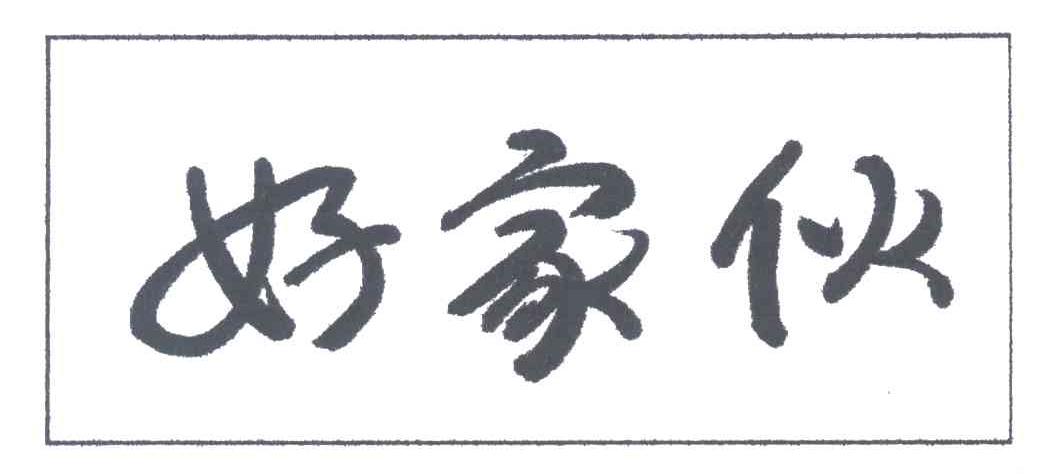 好家伙